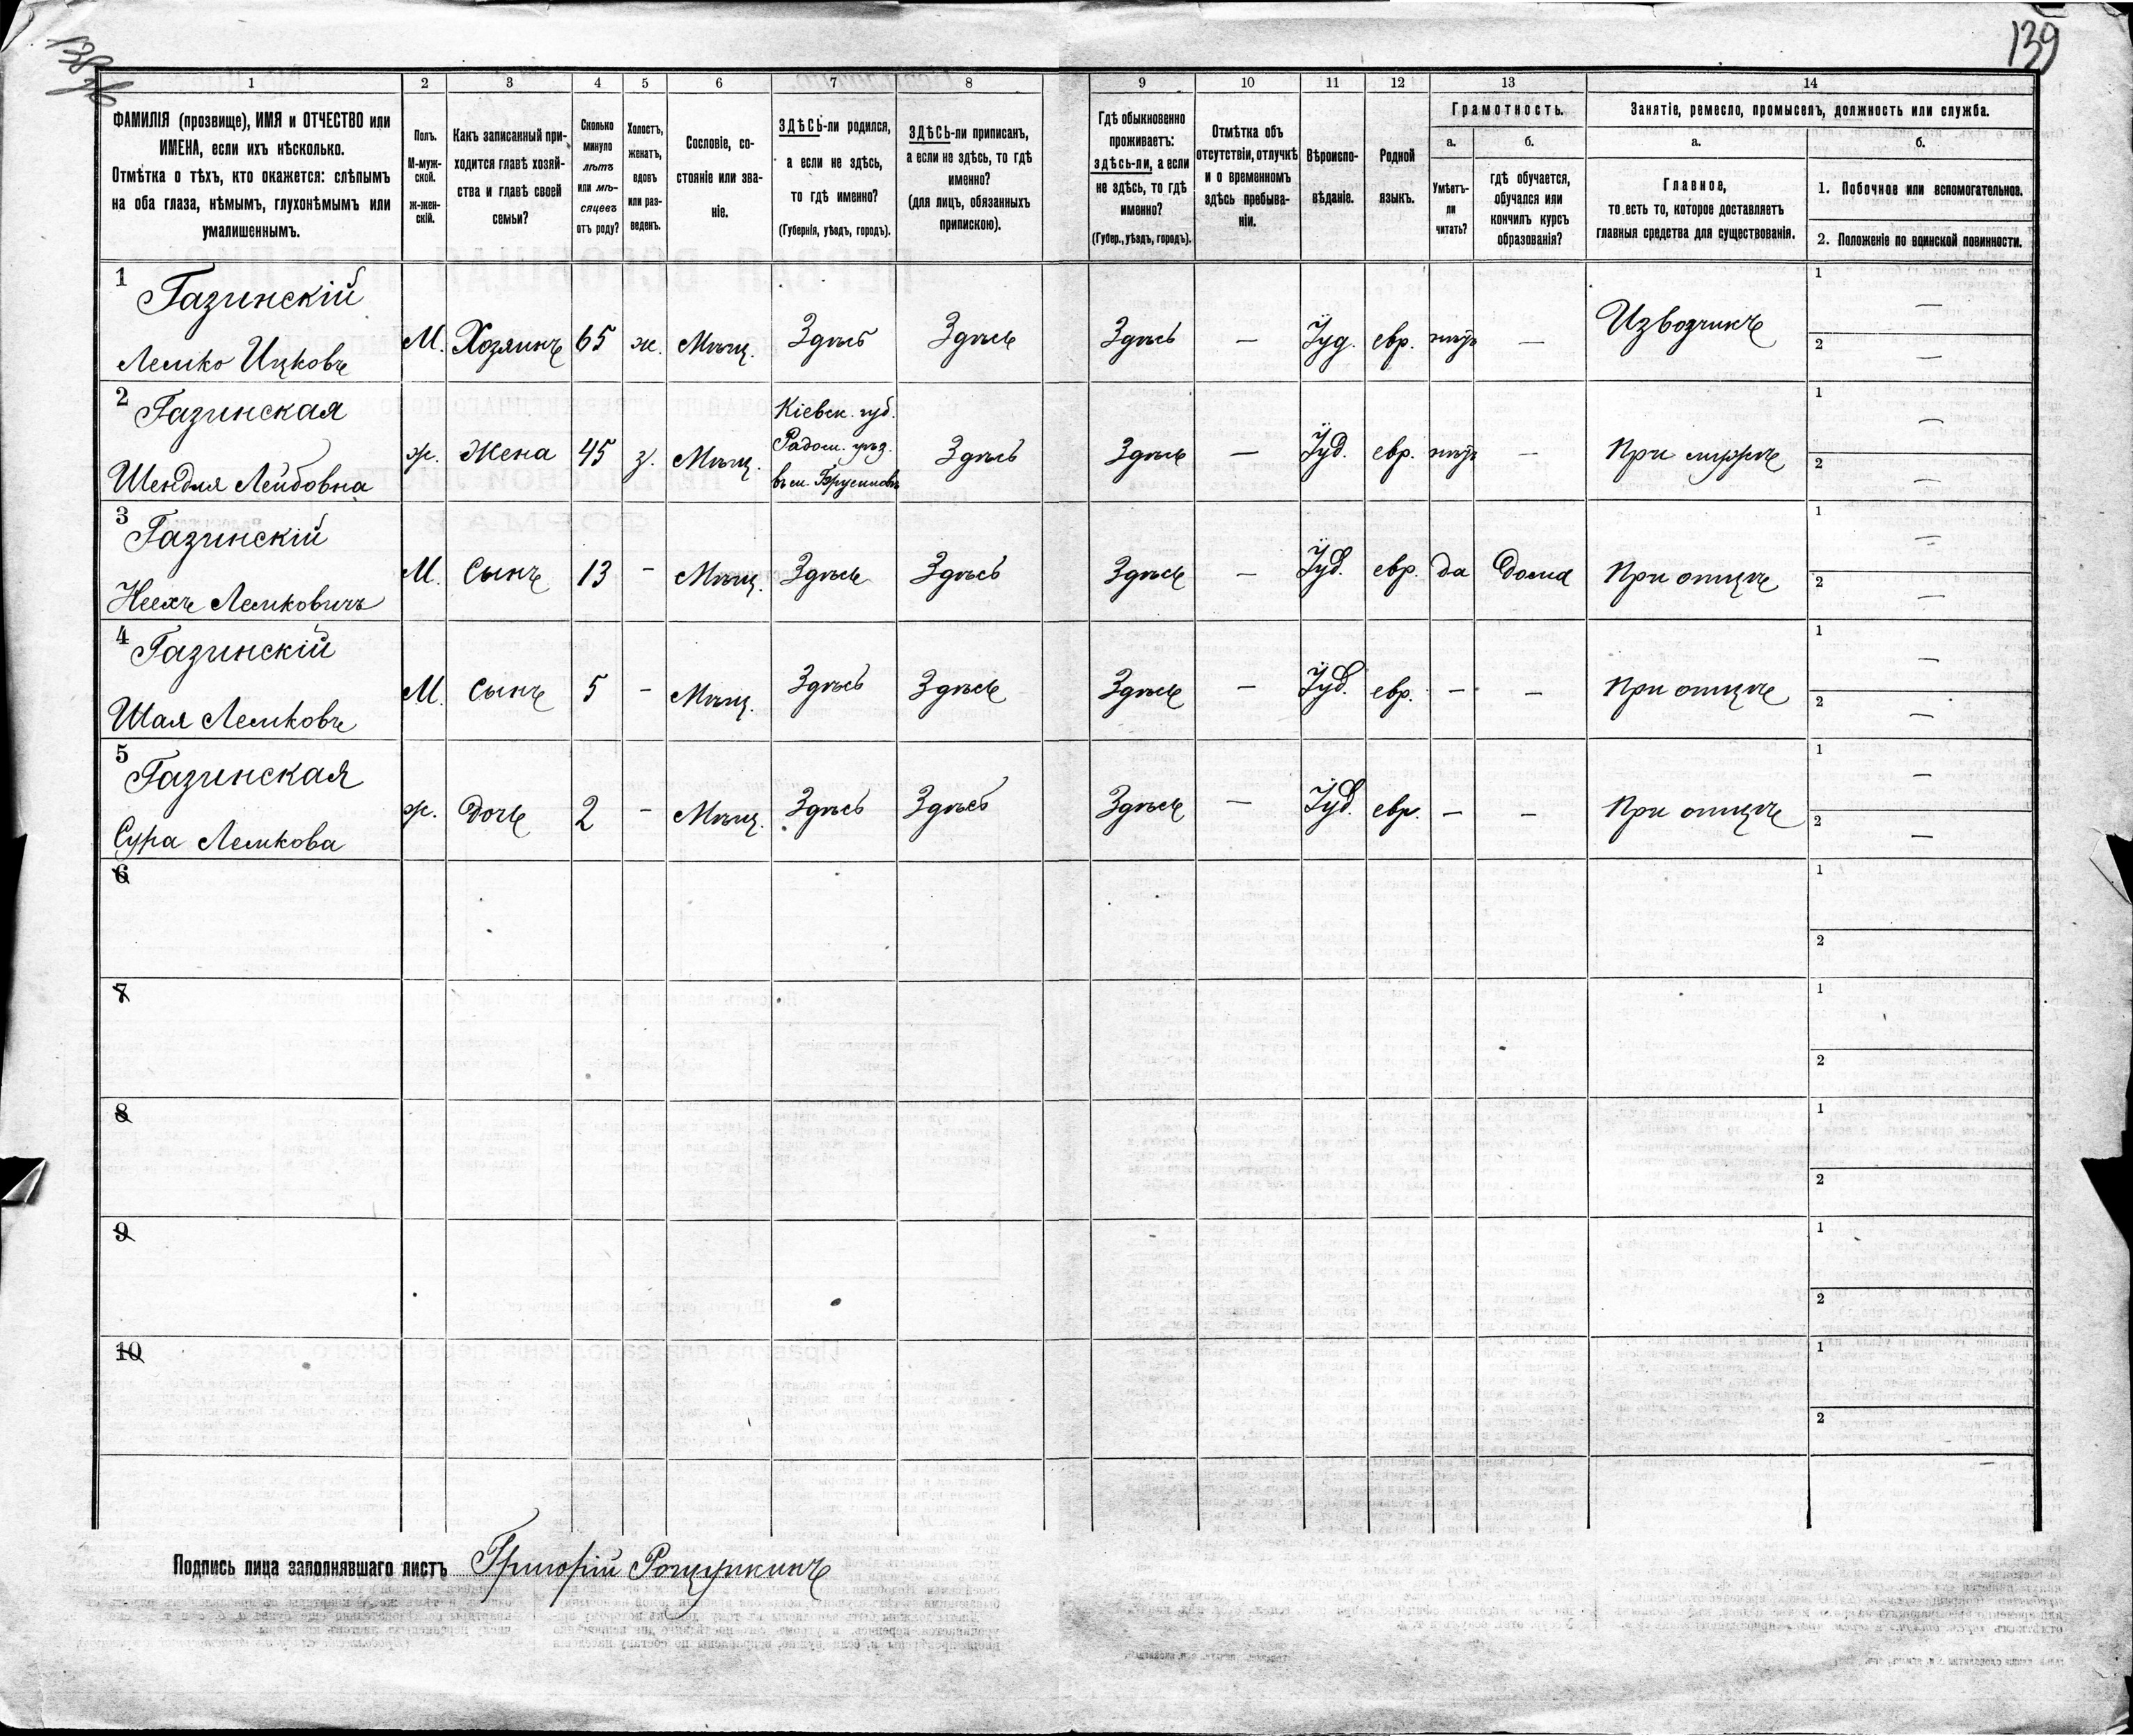 138 об
139
1 2 3 4 5 6 7 8 9 10 11 12 13 14
ФАМИЛІЯ (прозвище), ИМЯ и ОТЧЕСТВО или
ИМЕНА, если ихъ нѣсколько.
Отмѣтка о тѣхъ, кто окажется: слѣпымъ
на оба глаза, нѣмымъ, глухонѣмымъ или
умалишеннымъ.
Полъ.
М-муж-
ской.
ж-жен-
скій.
Какъ записанный при-
ходится главѣ хозяй-
ства и главѣ своей
семьи?
Сколько
минуло
лѣтъ
или мѣ-
сяцевъ
отъ роду?
Холостъ,
женатъ,
вдовъ
или раз-
веденъ.
Сословіе, со-
стояніе или зва-
ніе.
ЗДѢСЬ-ли родился,
а если не здѣсь,
то гдѣ именно?
(Губернія, уѣздъ, городъ).
ЗДѢСЬ-ли приписанъ,
а если не здѣсь, то гдѣ
именно?
(для лицъ, обязанныхъ
припискою).
Гдѣ обыкновенно
проживаетъ:
здѣсь-ли, а если
не здѣсь, то гдѣ
именно?
(Губер., уѣздъ, городъ).
Отмѣтка объ
отсутствіи, отлучкѣ
и о временномъ
здѣсь пребыва-
ніи.
Вѣроиспо-
вѣданіе.
Родной
языкъ.
Грамотность.
а.
Умѣетъ-
ли
читать?
б.
гдѣ обучается,
обучался или
кончилъ курсъ
образованія?
Занятіе, ремесло, промыселъ, должность или служба.
а.
Главное,
то есть то, которое доставляетъ
главныя средства для существованія.
б.
1. Побочное или вспомогательное.
2. Положеніе по воинской повинности.
1 Газинскій
Лемко Ицковъ
М. Хозяинъ 65 ж. Мѣщ. Здѣсь Здѣсь Здѣсь — Іуд. евр. нѣтъ — Извозчикъ 1 — 2 —
2 Газинская
Шендля Лейбовна
ж. Жена 45 з. Мѣщ.
Кіевск. губ.
Радом. уѣз.
въ м. Брусиловъ
Здѣсь Здѣсь — Іуд. евр. нѣтъ — При мужѣ 1 — 2 —
3 Газинскій
Лемковичъ
М. Сынъ 13 - Мѣщ. Здѣсь Здѣсь Здѣсь — Іуд. евр. да Дома При отцѣ 1 — 2 —
4 Газинскій
Шая Лемковъ
М. Сынъ 5 - Мѣщ. Здѣсь Здѣсь Здѣсь — Іуд. евр. — — При отцѣ 1 — 2 —
5 Газинская
Сура Лемкова
ж. Дочь 2 - Мѣщ. Здѣсь Здѣсь Здѣсь — Іуд. евр. — — При отцѣ 1 — 2 —
6 1
2
7 1
2
8 1
2
9 1
2
10 1
2
Подпись лица заполнявшаго листъ Григорій Рощупкинъ